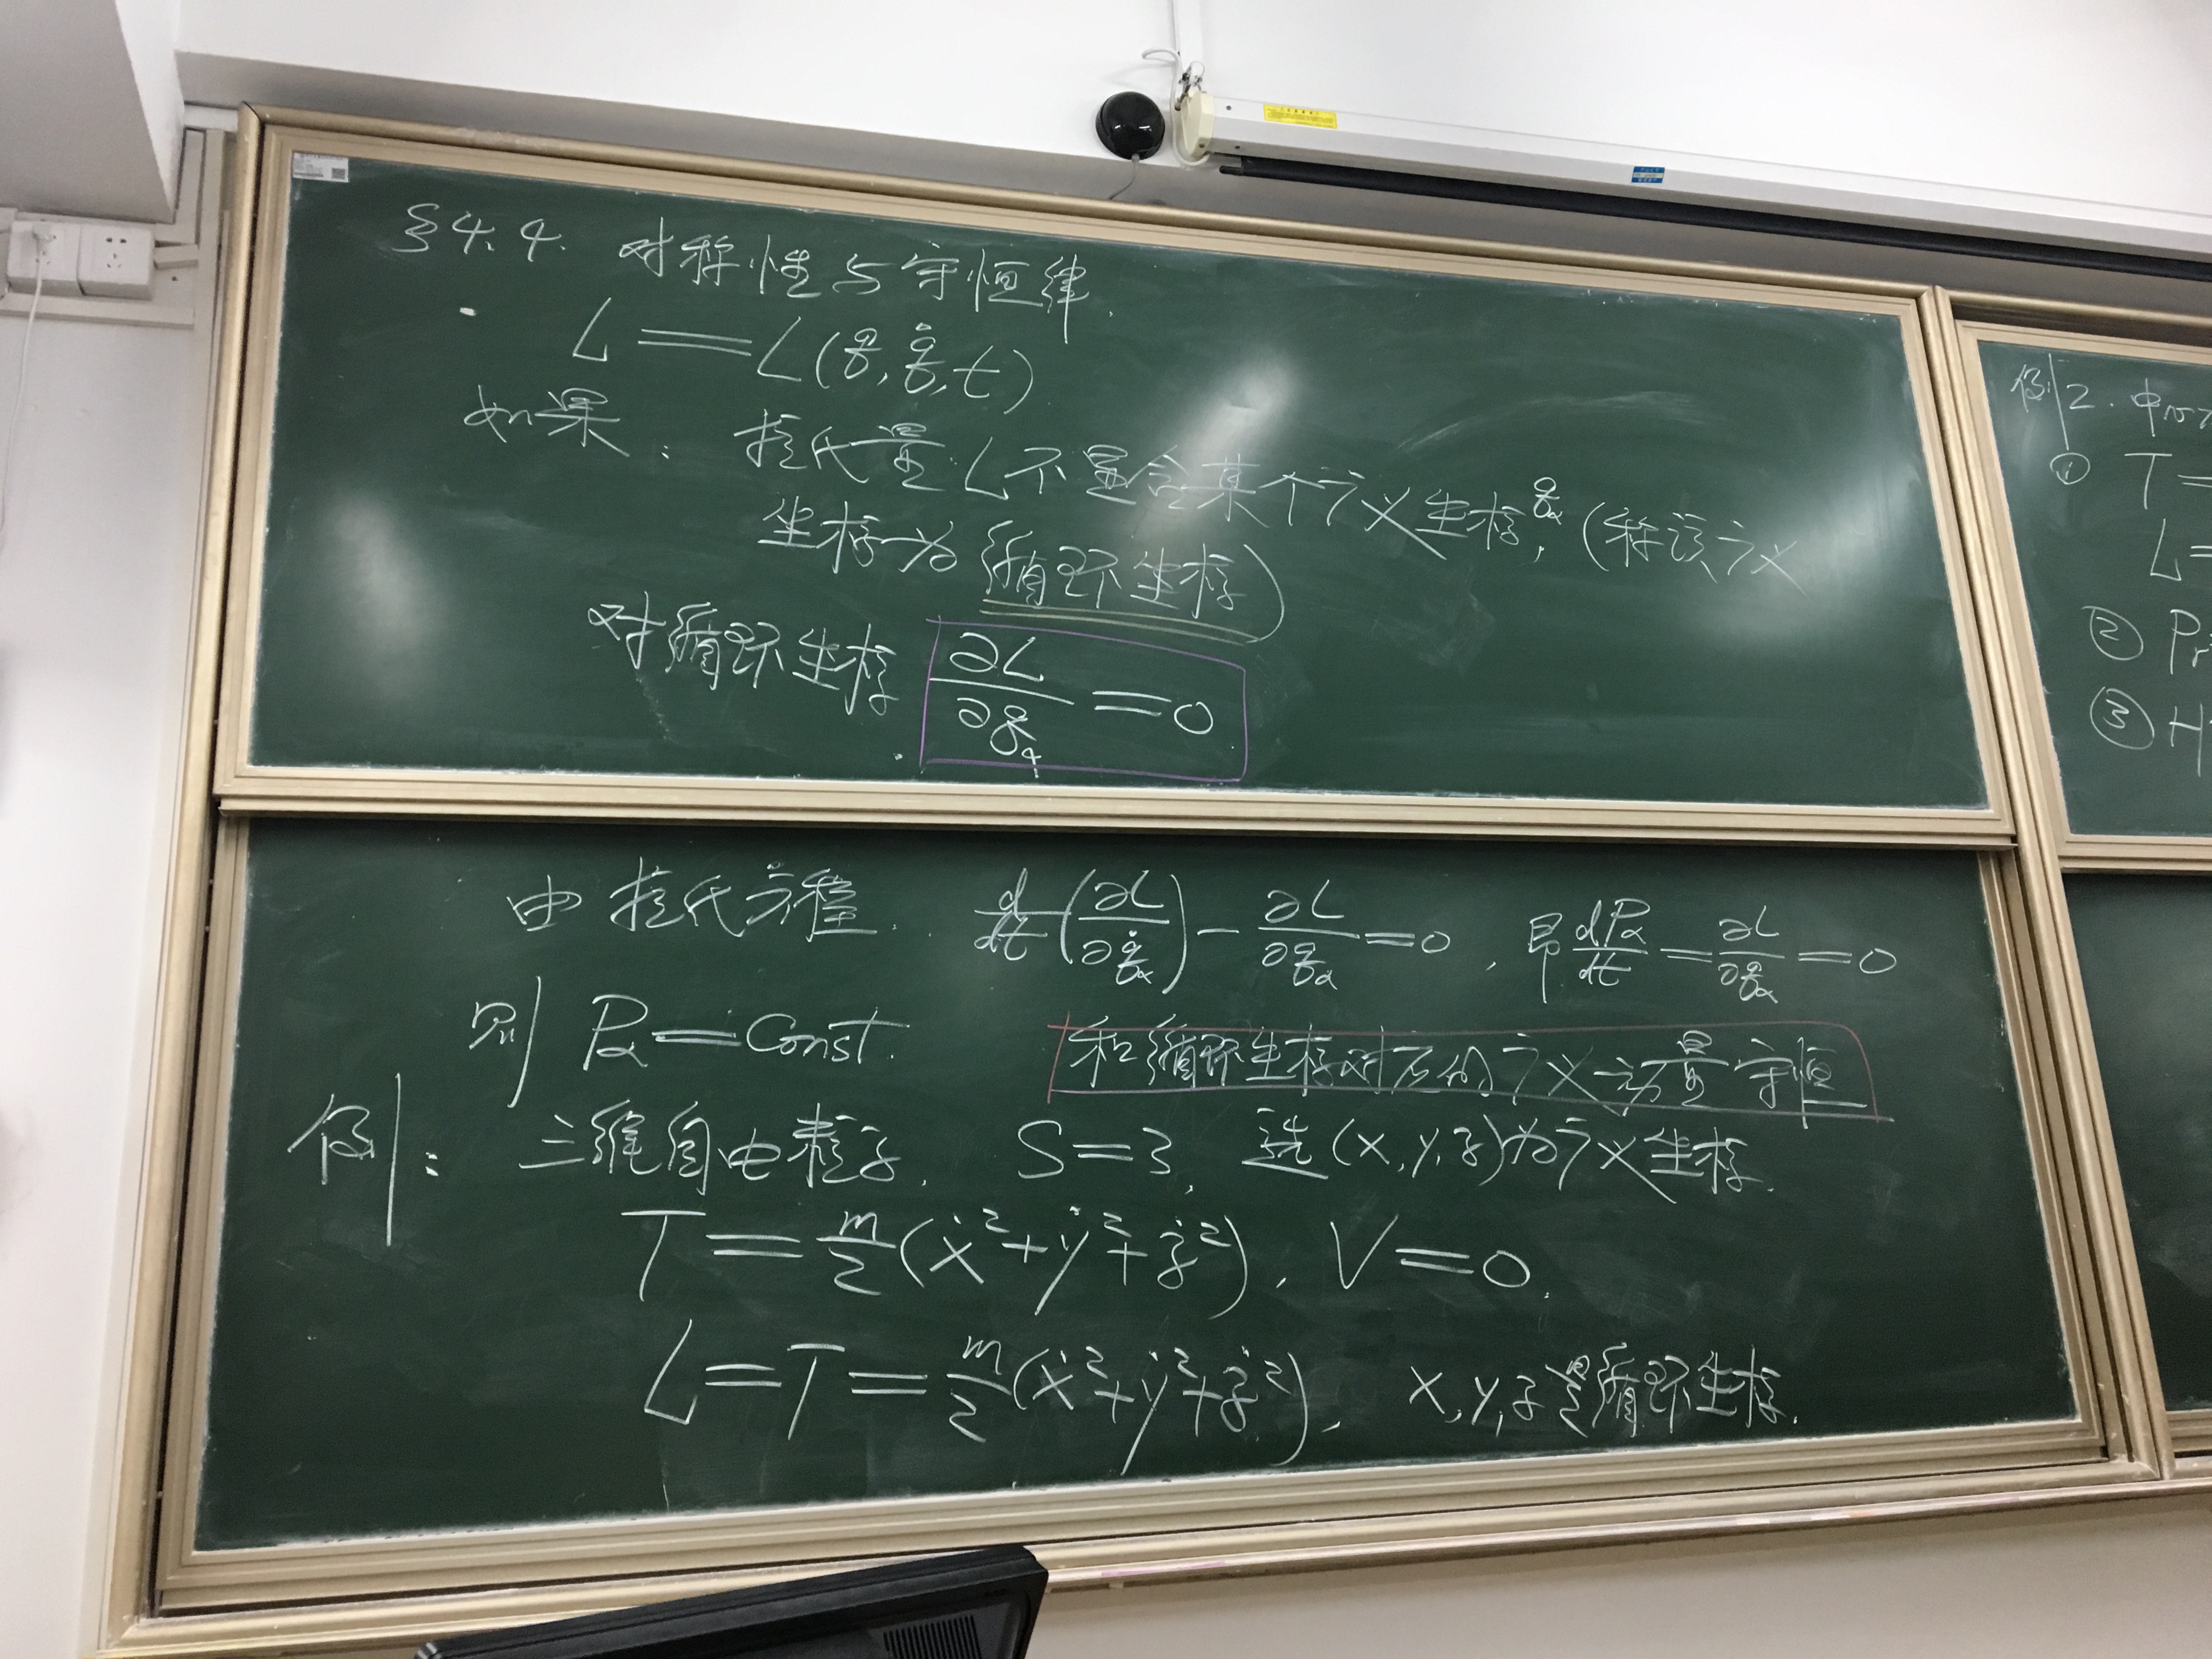 §4.4. 对称性与守恒律.
L = L(q, q̇, t)
如果: 拉氏量L不显含某个广义坐标qα, (称该广义
坐标为循环坐标)
对循环坐标 ∂L/∂qα = 0.
由拉氏方程. d/dt(∂L/∂q̇α) - ∂L/∂qα = 0, 即 dPα/dt = ∂L/∂qα = 0
则 Pα = Const. 和循环坐标对应的广义动量守恒
例: 三维自由粒子. S=3, 选(x,y,z)为广义坐标.
T = m/2(ẋ²+ẏ²+ż²), V=0.
L=T= m/2(ẋ²+ẏ²+ż²), x,y,z是循环坐标.
例2. 中心
① T=
L=
② Pr
③ H